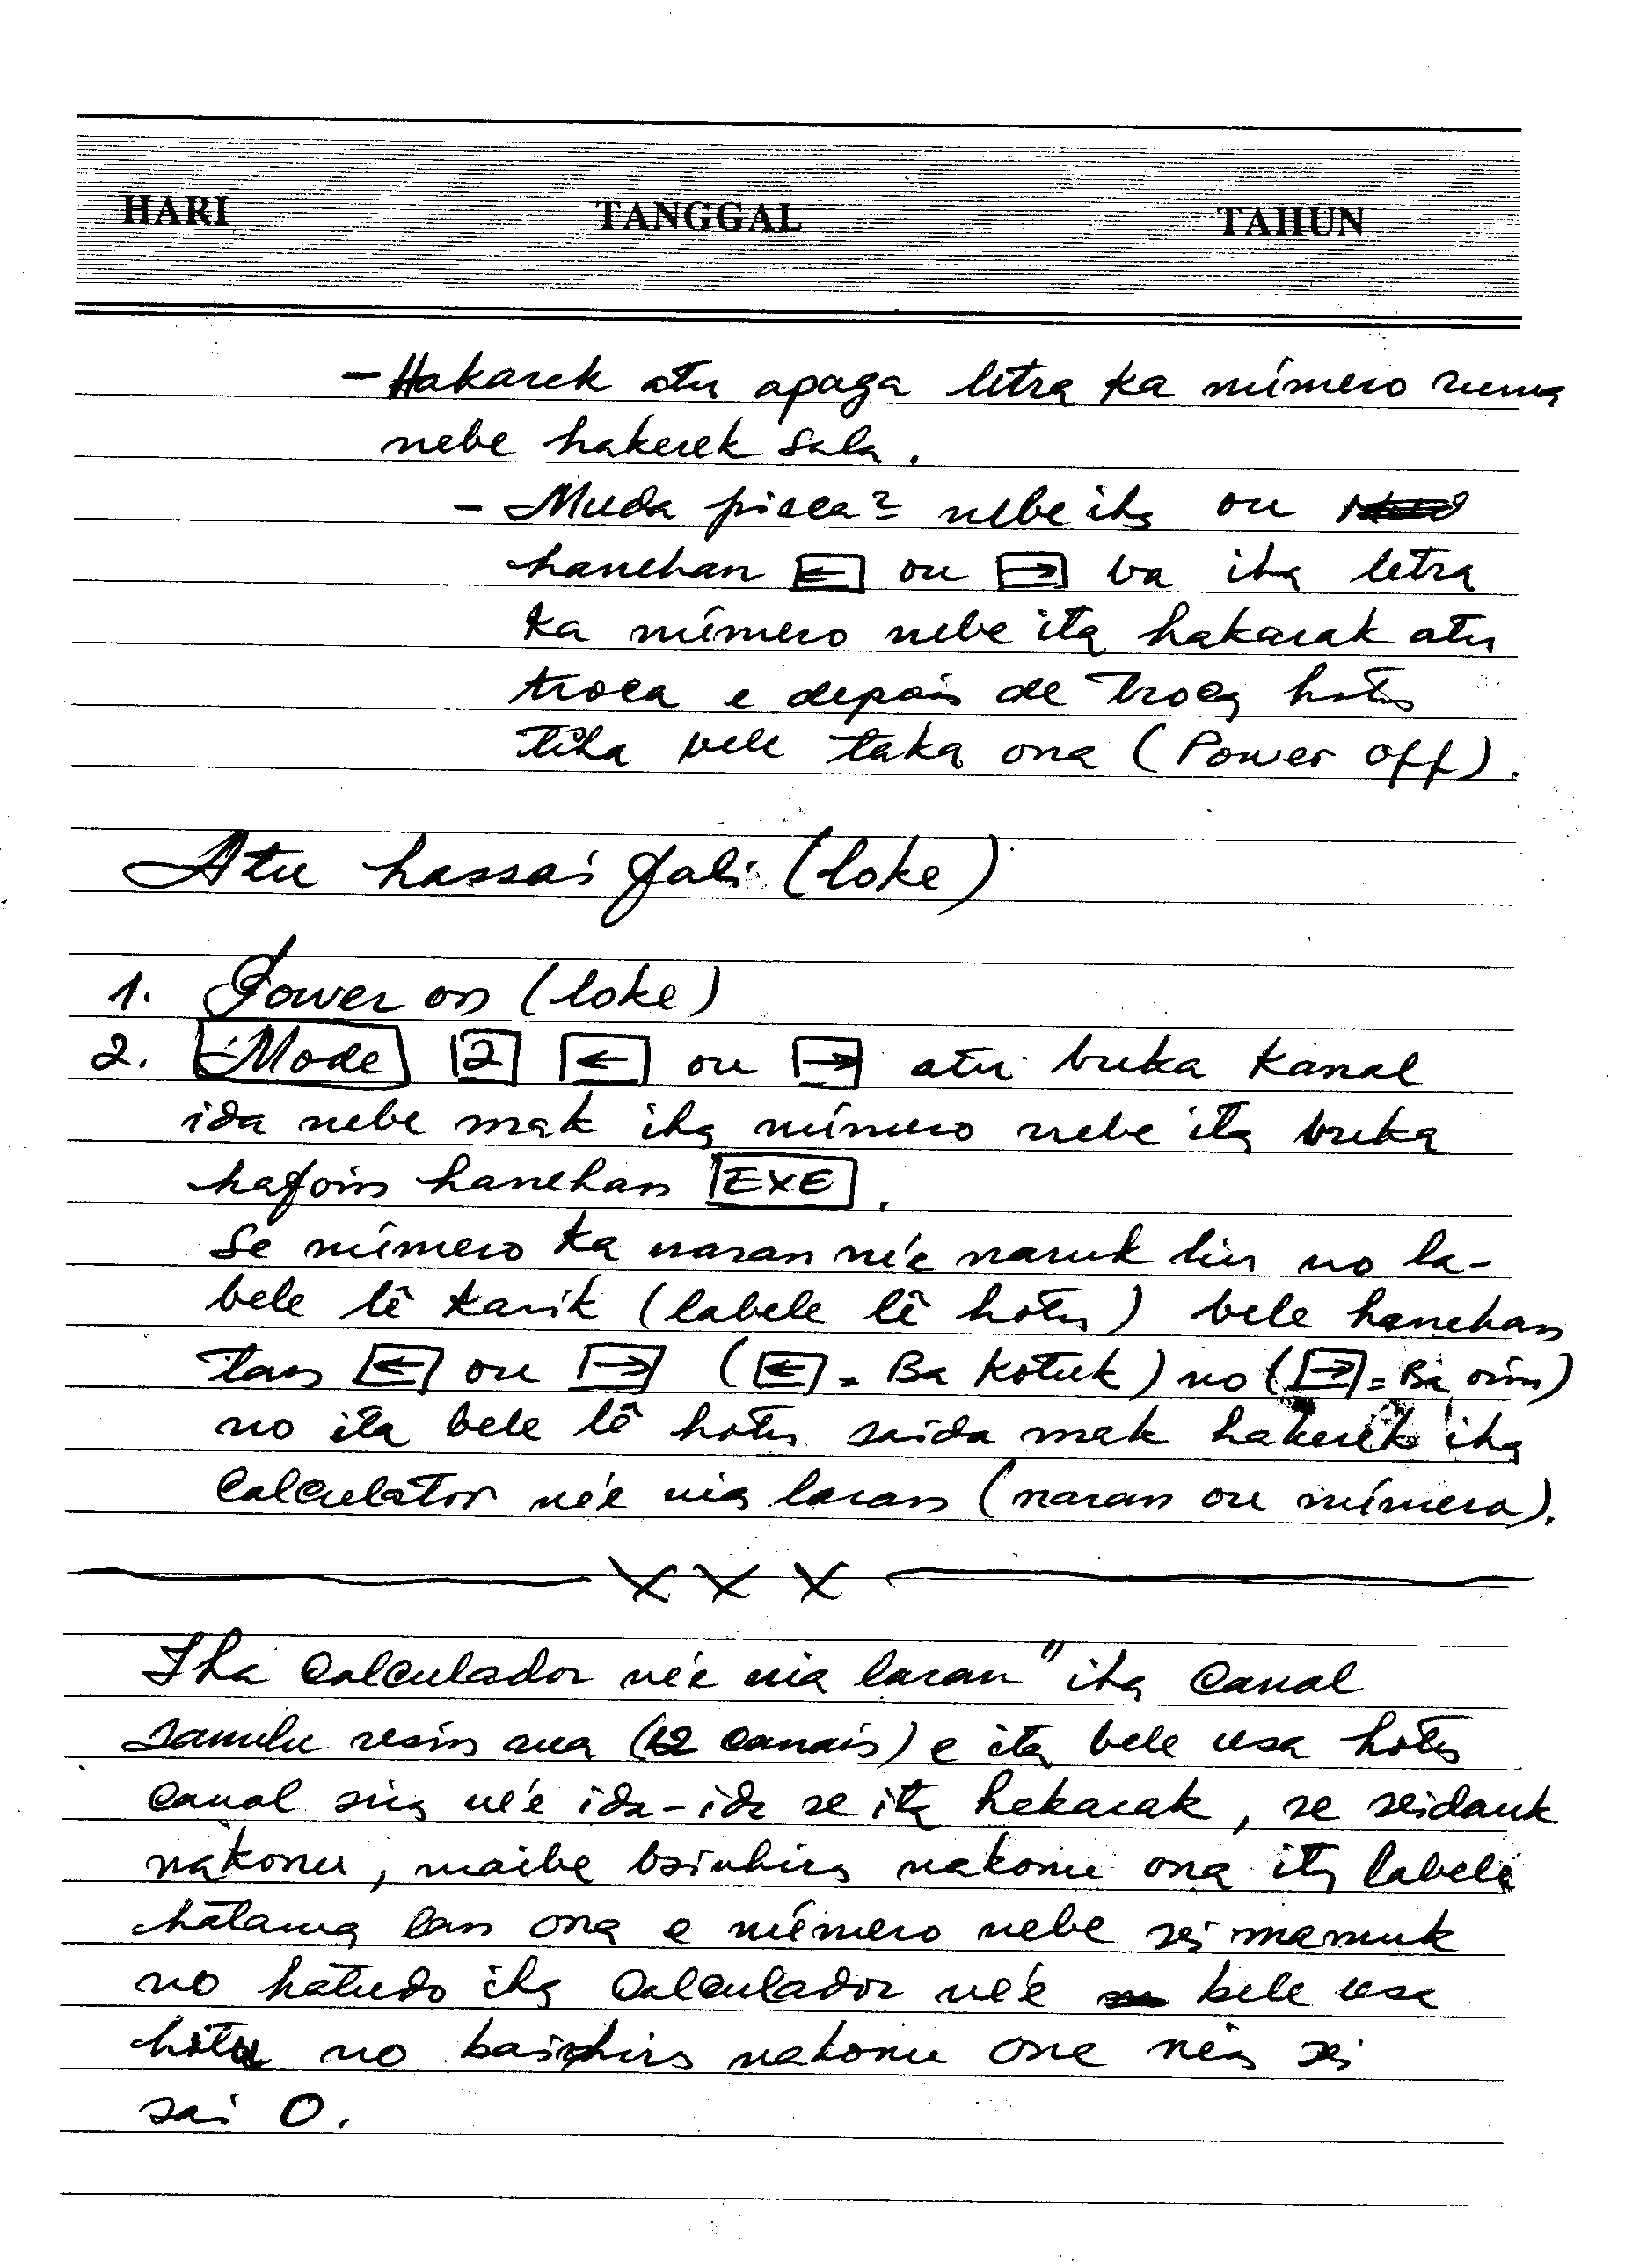 HARI TANGGAL TAHUN
- Hakarek atu apaga letra ka número ruma
nebe hakerek sala.
- Muda pisca² nebe iha ou
hanehan [←] ou [→] ba iha letra
ka número nebe ita hakarak atu
troca e depois de troca hotu
tiha bele taka ona (Power off).
Atu hassai fali (loke)
1. Power on (loke)
2. [Mode] [2] [←] ou [→] atu buka kanal
ida nebe mak iha número nebe ita buka
hafoin hanehan [EXE].
Se número ka naran ne'e naruk liu no la-
bele lê karik (labele lê hotu) bele hanehan
tan [←] ou [→] ([←] = Ba kotuk) no ([→] = Ba oin)
no ita bele lê hotu saida mak hakerek iha
Calculator ne'e nia laran (naran ou número).
X X X
Iha Calculador ne'e nia laran" iha Canal
sanulu resin rua (12 canais) e ita bele usa hotu
canal sira ne'e ida-ida se ita hakarak, se seidauk
nakonu, maibe bainhira nakonu ona ita labele
hatama tan ona e número nebe sei mamuk
no hatudo iha Calculador ne'e bele usa
hotu no bainhira nakonu ona nia sei
sai 0.